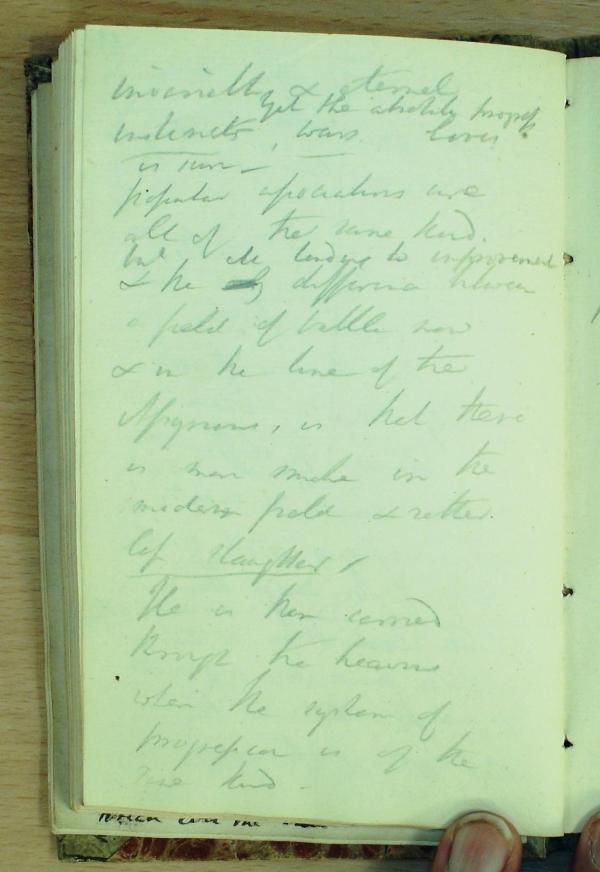 invincibility & eternal
yet the absolute progress
instincts, wars loves
is sure -
popular associations are
all of the same kind.
but all tending to improvement
& the only difference between
a field of battle now
& in the time of the
Assyrians, is that there
is more smoke in the
modern field & rather
less slaughter,
He is then carried
through the heavens
when the system of
progression is of the
same kind -